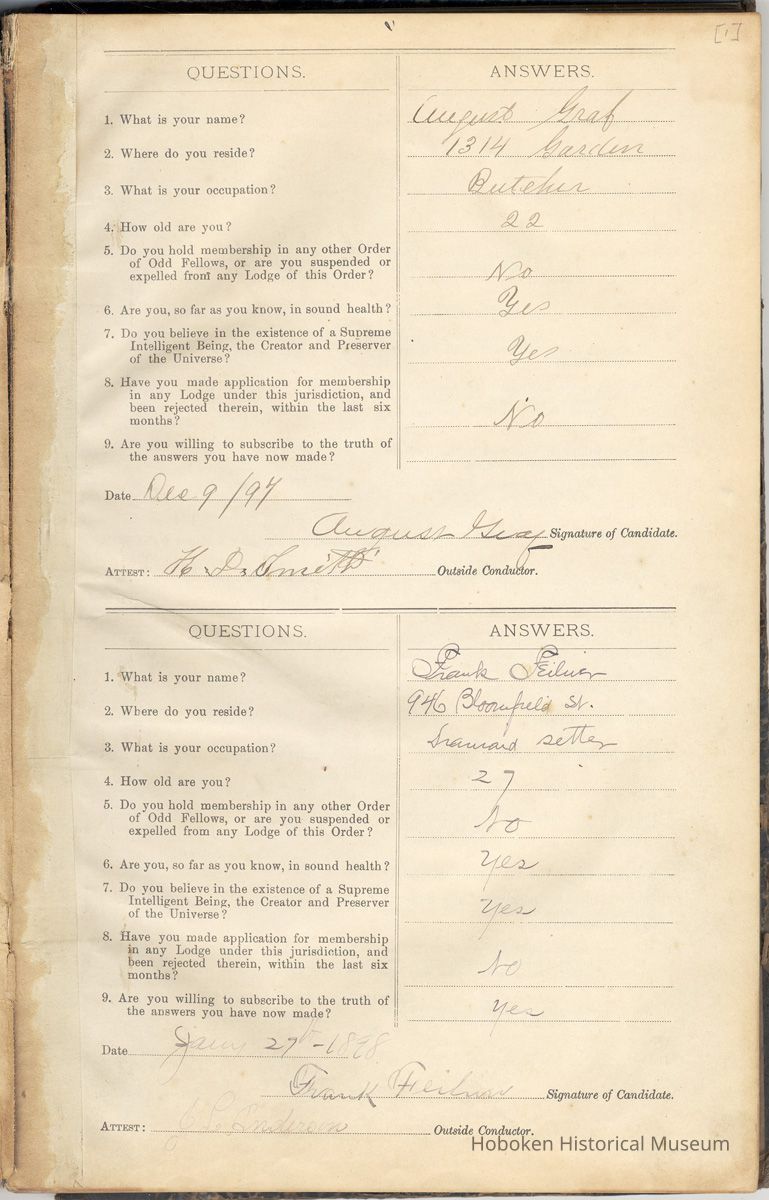 [1]
QUESTIONS. ANSWERS.
1. What is your name? August Graf
2. Where do you reside? 1314 Garden
3. What is your occupation? Butcher
4. How old are you? 22
5. Do you hold membership in any other Order
of Odd Fellows, or are you suspended or
expelled from any Lodge of this Order? No
6. Are you, so far as you know, in sound health? Yes
7. Do you believe in the existence of a Supreme
Intelligent Being, the Creator and Preserver
of the Universe? Yes
8. Have you made application for membership
in any Lodge under this jurisdiction, and
been rejected therein, within the last six
months? No
9. Are you willing to subscribe to the truth of
the answers you have now made?
Date Dec 9 /97
August Graf Signature of Candidate.
ATTEST: H. D. Smith Outside Conductor.
QUESTIONS. ANSWERS.
1. What is your name? Frank Feilner
2. Where do you reside? 946 Bloomfield St.
3. What is your occupation? setter
4. How old are you? 27
5. Do you hold membership in any other Order
of Odd Fellows, or are you suspended or
expelled from any Lodge of this Order? No
6. Are you, so far as you know, in sound health? Yes
7. Do you believe in the existence of a Supreme
Intelligent Being, the Creator and Preserver
of the Universe? Yes
8. Have you made application for membership
in any Lodge under this jurisdiction, and
been rejected therein, within the last six
months? No
9. Are you willing to subscribe to the truth of
the answers you have now made? Yes
Date 27th - 1898
Frank Feilner Signature of Candidate.
ATTEST: Anderson Outside Conductor.
Hoboken Historical Museum